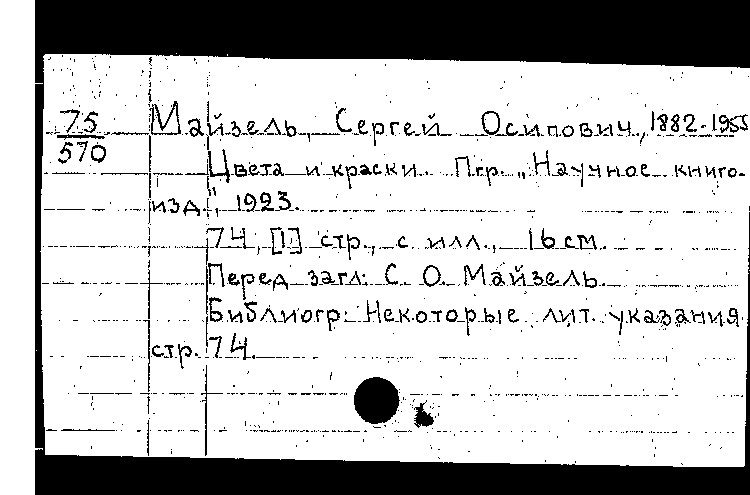 75
570
Майзель, Сергей Осипович, 1882-1955
Цвета и краски. Пгр. „Научное книго-
изд.", 1923.
74, [1] стр., с илл., 16 см.
Перед загл: С. О. Майзель.
Библиогр: Некоторые лит. указания
стр. 74.